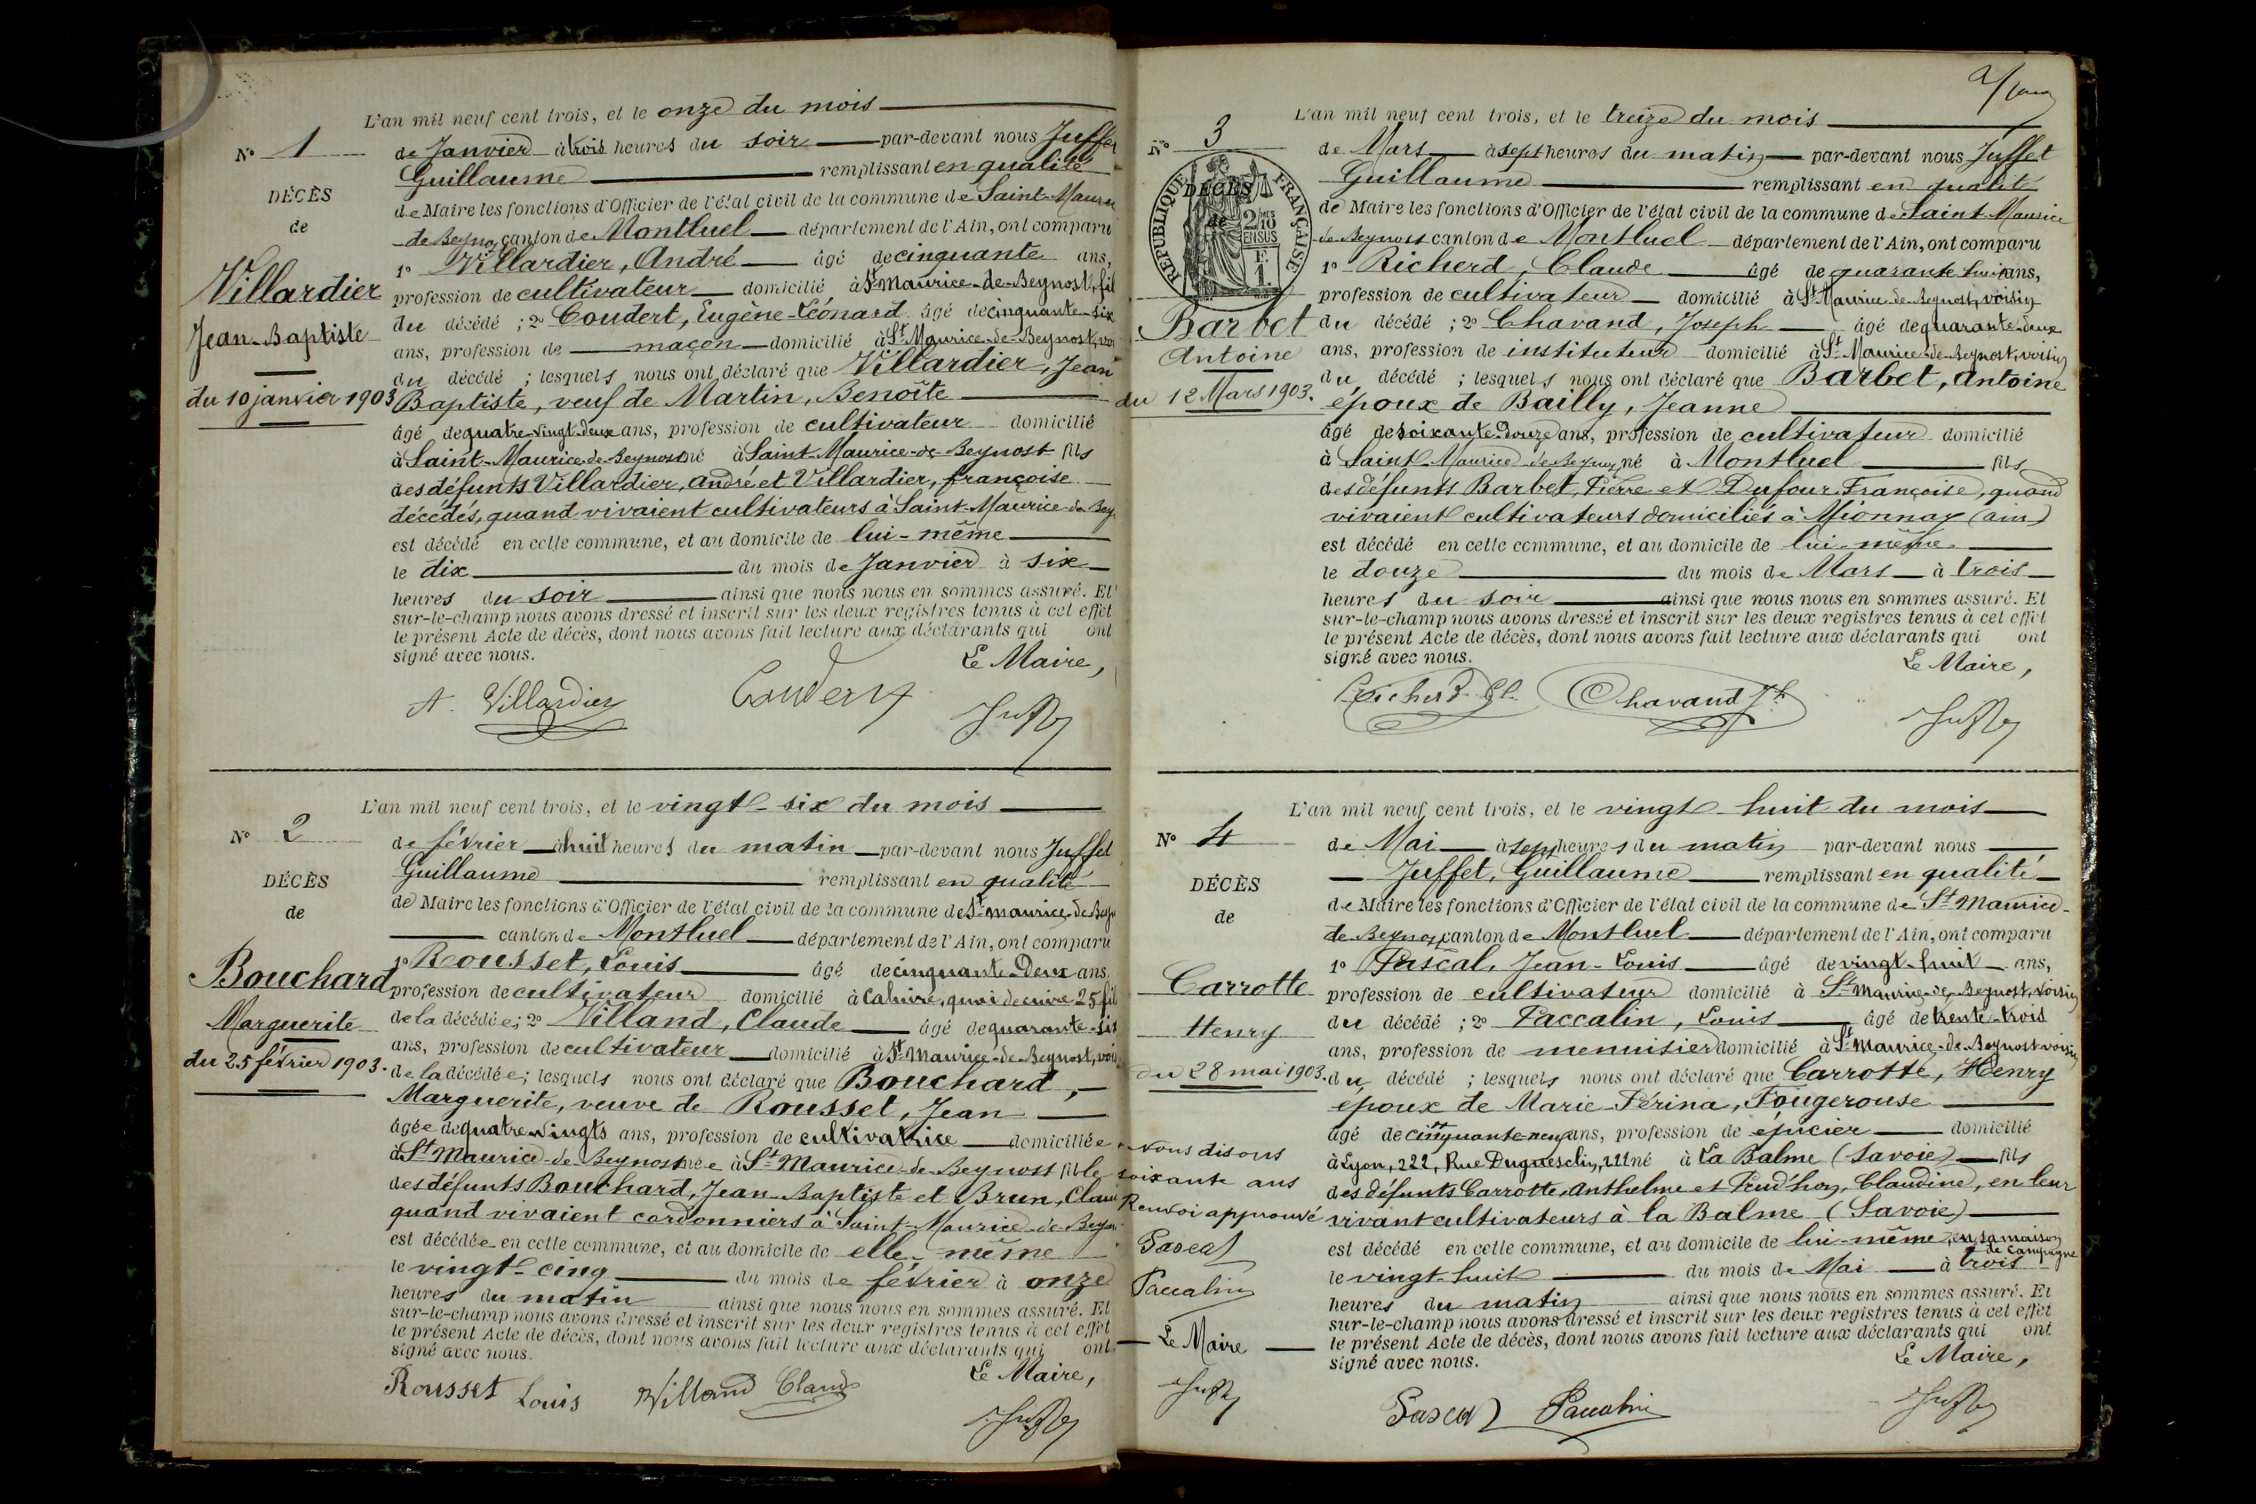 L'an mil neuf cent trois, et le onze du mois
N° 1
de Janvier à trois heures du soir par-devant nous Juffet
Guillaume remplissant en qualité
DÉCÈS
de Maire les fonctions d'Officier de l'état civil de la commune de Saint-Maurice
de
de Beynost canton de Montluel département de l'Ain, ont comparu
1° Villardier, André âgé de cinquante ans,
Villardier
profession de cultivateur domicilié à St Maurice-de-Beynost, fils
Jean-Baptiste
du décédé ; 2° Coudert, Eugène-Léonard âgé de cinquante-six
ans, profession de maçon domicilié à St Maurice-de-Beynost, voi
du décédé ; lesquels nous ont déclaré que Villardier, Jean
du 10 janvier 1903
Baptiste, veuf de Martin, Benoîte
âgé de quatre-vingt-deux ans, profession de cultivateur domicilié
à Saint-Maurice-de-Beynost né à Saint-Maurice-de-Beynost fils
des défunts Villardier, André et Villardier, françoise
décédés, quand vivaient cultivateurs à Saint-Maurice-de-Bey
est décédé en cette commune, et au domicile de lui-même
le dix du mois de Janvier à six
heures du soir ainsi que nous nous en sommes assuré. Et
sur-le-champ nous avons dressé et inscrit sur les deux registres tenus à cet effet
le présent Acte de décès, dont nous avons fait lecture aux déclarants qui ont
signé avec nous.
Le Maire,
A. Villardier Coudert Juffet
L'an mil neuf cent trois, et le vingt-six du mois
N° 2
de février à huit heures du matin par-devant nous Juffet
Guillaume remplissant en qualité
DÉCÈS
de Maire les fonctions d'Officier de l'état civil de la commune de St-maurice-de-Beyn
de
canton de Montluel département de l'Ain, ont comparu
1° Rousset, Louis âgé de cinquante-Deux ans,
Bouchard
profession de cultivateur domicilié à Caluire, quai de cuire 25 fil
Marguerite
de la décédée ; 2° Villand, Claude âgé de quarante-six
ans, profession de cultivateur domicilié à St-Maurice-de-Beynost, voi
du 25 février 1903.
de la décédée ; lesquels nous ont déclaré que Bouchard,
Marguerite, veuve de Rousset, Jean
âgée de quatre-vingts ans, profession de cultivatrice domiciliée
à St Maurice-de-Beynost née à St-Maurice-de-Beynost fille
des défunts Bouchard, Jean-Baptiste et Brun, Clau
quand vivaient cordonniers à Saint-Maurice-de-Beyn
est décédée en cette commune, et au domicile de elle-même
le vingt-cinq du mois de février à onze
heures du matin ainsi que nous nous en sommes assuré. Et
sur-le-champ nous avons dressé et inscrit sur les deux registres tenus à cet effet
le présent Acte de décès, dont nous avons fait lecture aux déclarants qui ont
signé avec nous.
Le Maire,
Rousset Louis Villand Claude Juffet
L'an mil neuf cent trois, et le treize du mois
N° 3
de Mars à sept heures du matin par-devant nous Juffet
Guillaume remplissant en qualité
RÉPUBLIQUE FRANÇAISE
2/10 EN SUS
F. 1.
DÉCÈS
de Maire les fonctions d'Officier de l'état civil de la commune de Saint-Maurice
de
de Beynost canton de Montluel département de l'Ain, ont comparu
1° Richerd, Claude âgé de quarante-huit ans,
profession de cultivateur domicilié à St Maurice-de-Beynost, voisin
Barbet
du décédé ; 2° Chavand, Joseph âgé de quarante-deux
Antoine
ans, profession de instituteur domicilié à St-Maurice-de-Beynost, voisin
du décédé ; lesquels nous ont déclaré que Barbet, Antoine
du 12 Mars 1903.
époux de Bailly, Jeanne
âgé de soixante-douze ans, profession de cultivateur domicilié
à Saint-Maurice-de-Beynost né à Montluel fils
des défunts Barbet, Pierre et Dufour, Françoise, quand
vivaient cultivateurs domiciliés à Mionnay (ain)
est décédé en cette commune, et au domicile de lui-même
le douze du mois de Mars à trois
heures du soir ainsi que nous nous en sommes assuré. Et
sur-le-champ nous avons dressé et inscrit sur les deux registres tenus à cet effet
le présent Acte de décès, dont nous avons fait lecture aux déclarants qui ont
signé avec nous.
Le Maire,
Richerd Cl. Chavand Jh Juffet
L'an mil neuf cent trois, et le vingt-huit du mois
N° 4
de Mai à sept heures du matin par-devant nous
Juffet, Guillaume remplissant en qualité
DÉCÈS
de Maire les fonctions d'Officier de l'état civil de la commune de St Maurice-
de
de Beynost canton de Montluel département de l'Ain, ont comparu
1° Pascal, Jean-Louis âgé de vingt-huit ans,
Carrotte
profession de cultivateur domicilié à St-Maurice-de-Beynost, voisin
Henry
du décédé ; 2° Paccalin, Louis âgé de trente-trois
ans, profession de menuisier domicilié à St-Maurice-de-Beynost voisin
du 28 mai 1903.
du décédé ; lesquels nous ont déclaré que Carrotte, Henry
époux de Marie-Périna, Fougerouse
âgé de cinquante-neuf ans, profession de épicier domicilié
Nous disons
à Lyon, 222, Rue Duguesclin, 222 né à La Balme (Savoie) fils
soixante ans
des défunts Carrotte, Anthelme et Prud'hon, Claudine, en leur
Renvoi approuvé
vivant cultivateurs à la Balme (Savoie)
est décédé en cette commune, et au domicile de lui-même, en sa maison
de campagne
le vingt-huit du mois de Mai à trois
heures du matin ainsi que nous nous en sommes assuré. Et
sur-le-champ nous avons dressé et inscrit sur les deux registres tenus à cet effet
le présent Acte de décès, dont nous avons fait lecture aux déclarants qui ont
signé avec nous.
Le Maire,
Pascal
Paccalin
Le Maire
Juffet
Pascal Paccalin Juffet